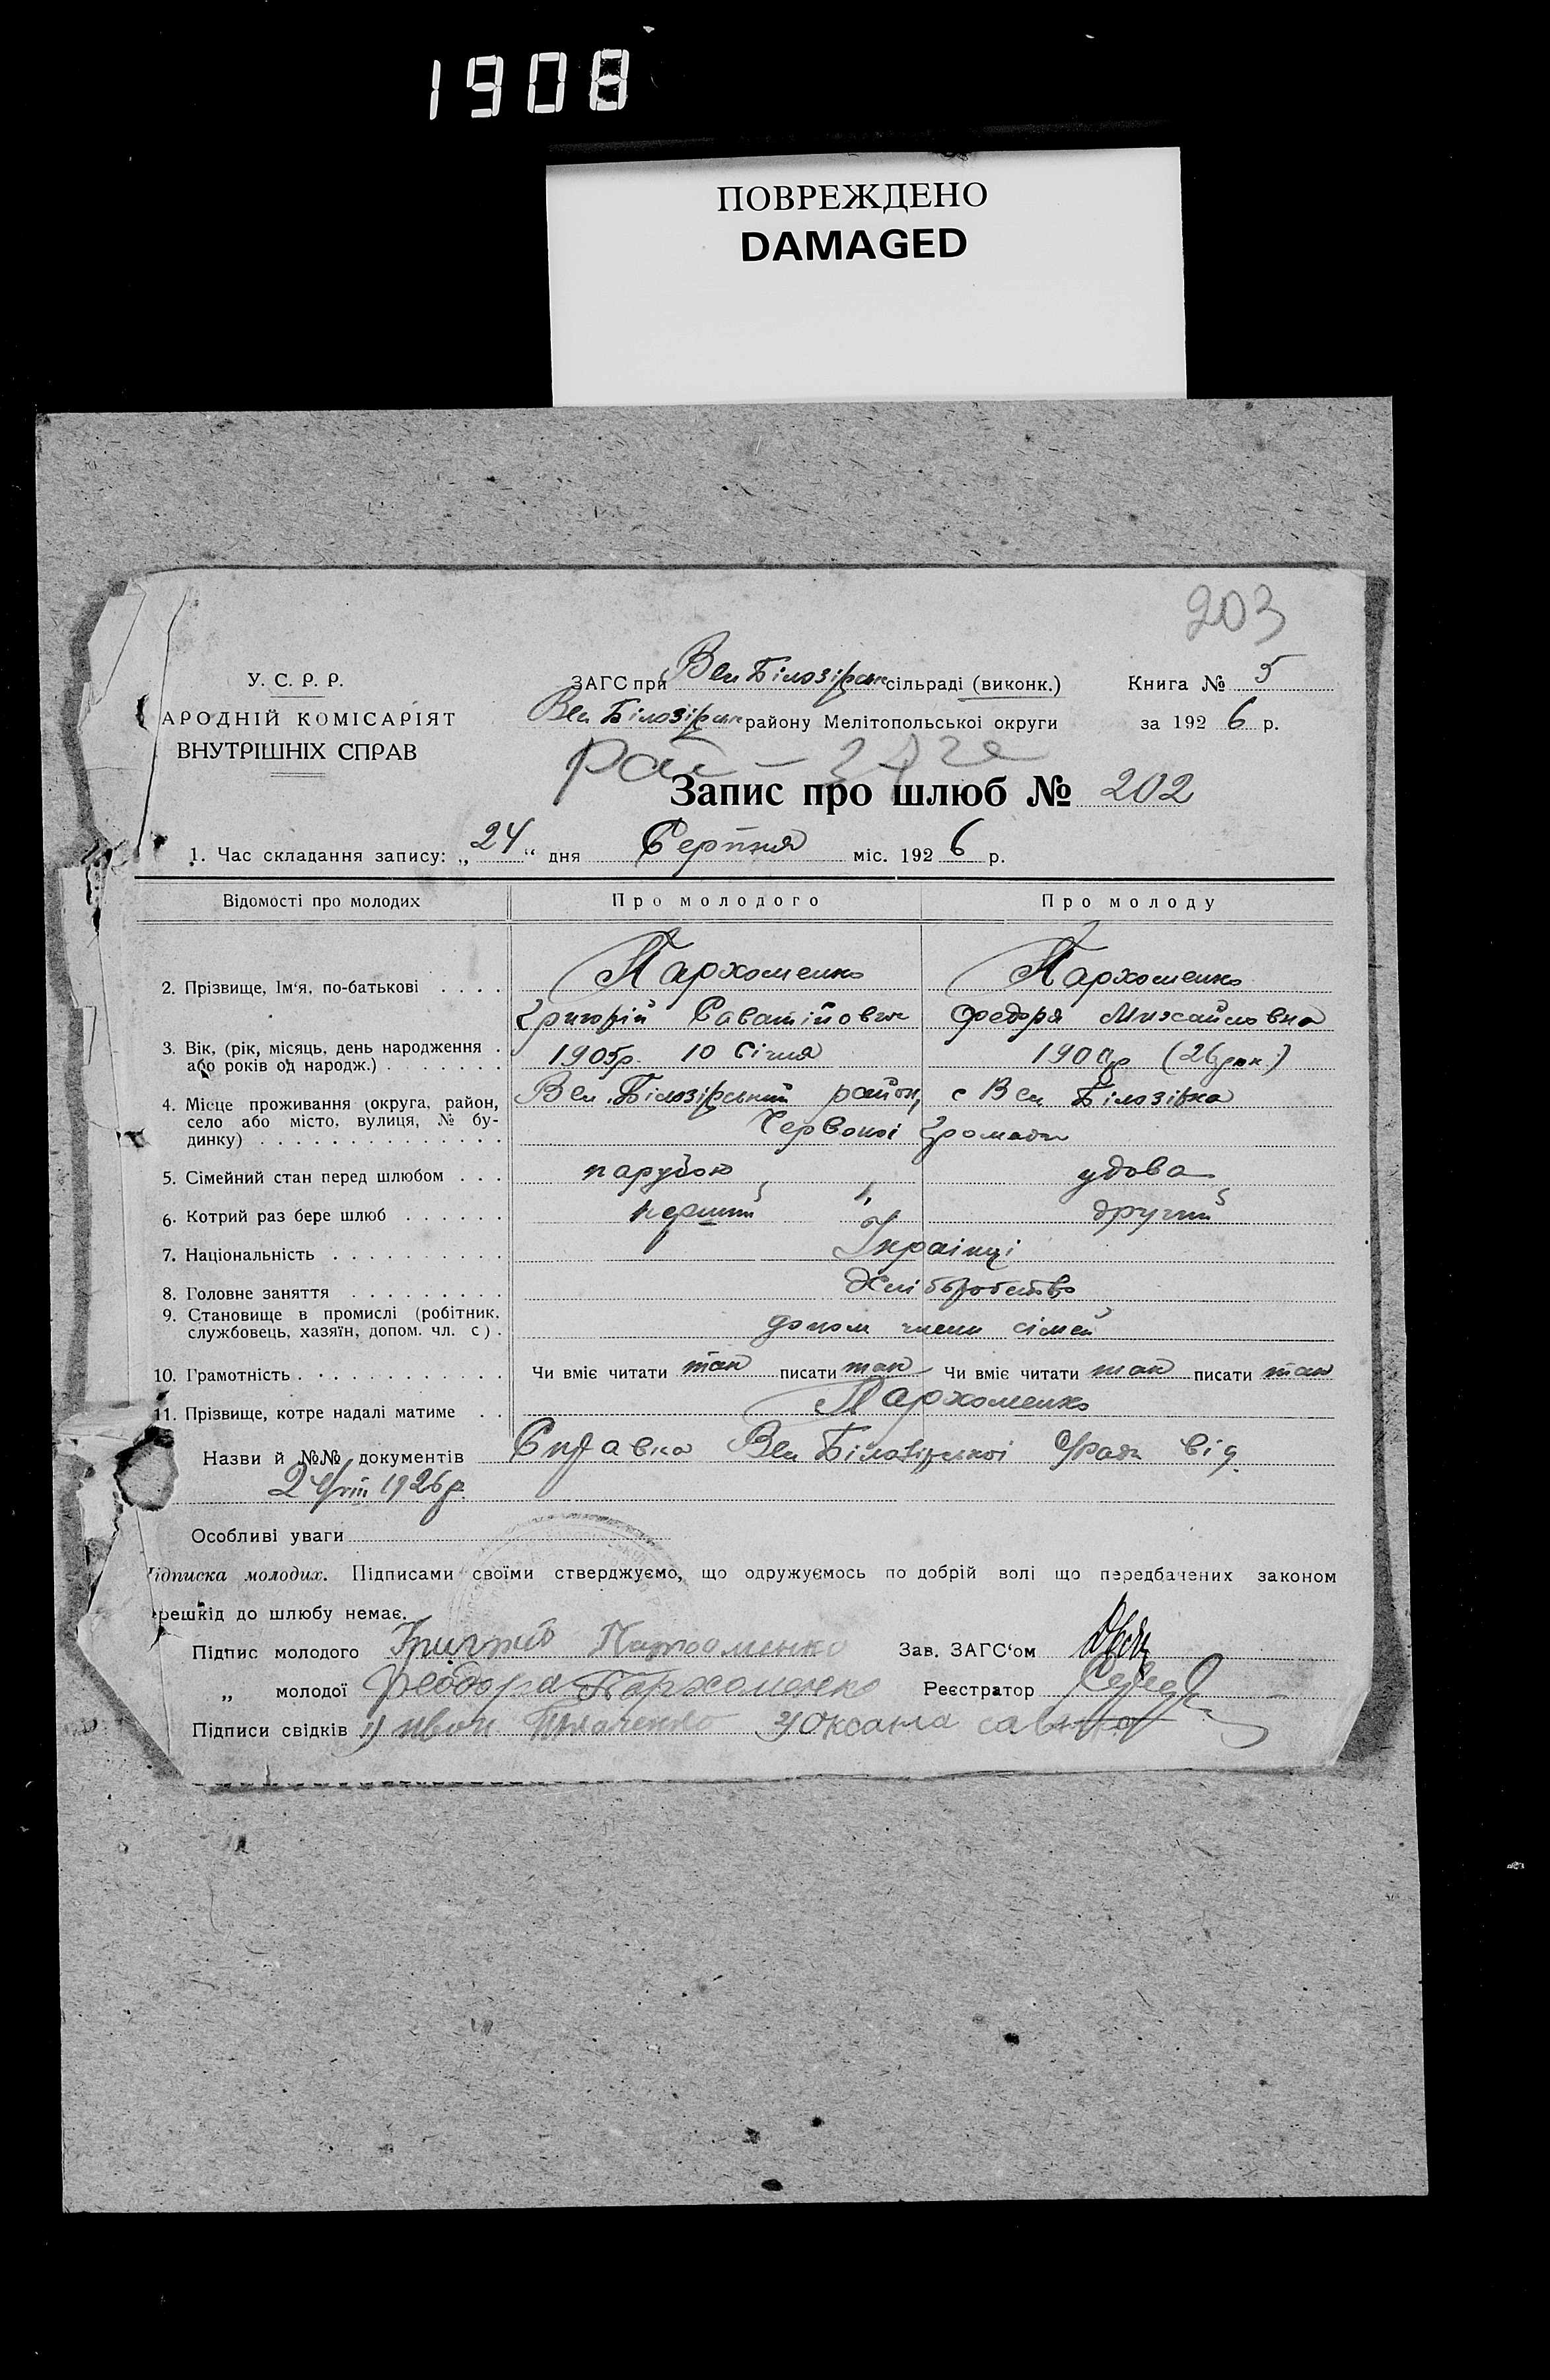 1908
ПОВРЕЖДЕНО
DAMAGED
203
У. С. Р. Р.
АРОДНІЙ КОМІСАРІЯТ
ВНУТРІШНІХ СПРАВ
ЗАГС при Вел Білозірськ сільраді (виконк.)
Вел Білозірськ району Мелітопольської округи
Книга № 5
за 192 6 р.
Запис про шлюб № 202
1. Час складання запису: „ 24 “ дня Серпня міс. 192 6 р.
Відомості про молодих Про молодого Про молоду
2. Прізвище, Ім'я, по-батькові . . . . Пархоменко Пархоменко
Григорій Саватійович Федоря Михайловна
3. Вік, (рік, місяць, день народження . або років од народж.) . . . . . . . 1905р. 10 Січня 1900р (26 рок.)
4. Місце проживання (округа, район, село або місто, вулиця, № будинку) . . . . . . . . . . . . . . Вел. Білозірський район, с Вел Білозірка
Червоної Громади
5. Сімейний стан перед шлюбом . . . парубок удова
6. Котрий раз бере шлюб . . . . . . перший другий
7. Національність . . . . . . . . . . Українці
8. Головне заняття . . . . . . . . . Хліборобство
9. Становище в промислі (робітник, службовець, хазяїн, допом. чл. с) . допом члени сімей
10. Грамотність . . . . . . . . . . . . Чи вміє читати так писати так Чи вміє читати так писати так
11. Прізвище, котре надалі матиме . . Пархоменко
Назви й №№ документів Справка Вел Білозірської С/ради від
24/VIII 1926р.
Особливі уваги
ідписка молодих. Підписами своїми стверджуємо, що одружуємось по добрій волі що передбачених законом
решкід до шлюбу немає.
Підпис молодого Григорій Пархоменко Зав. ЗАГС'ом
„ молодої Феодора Пархоменко Реєстратор
Підписи свідків 1) Иван Ткаченко 2) Оксана